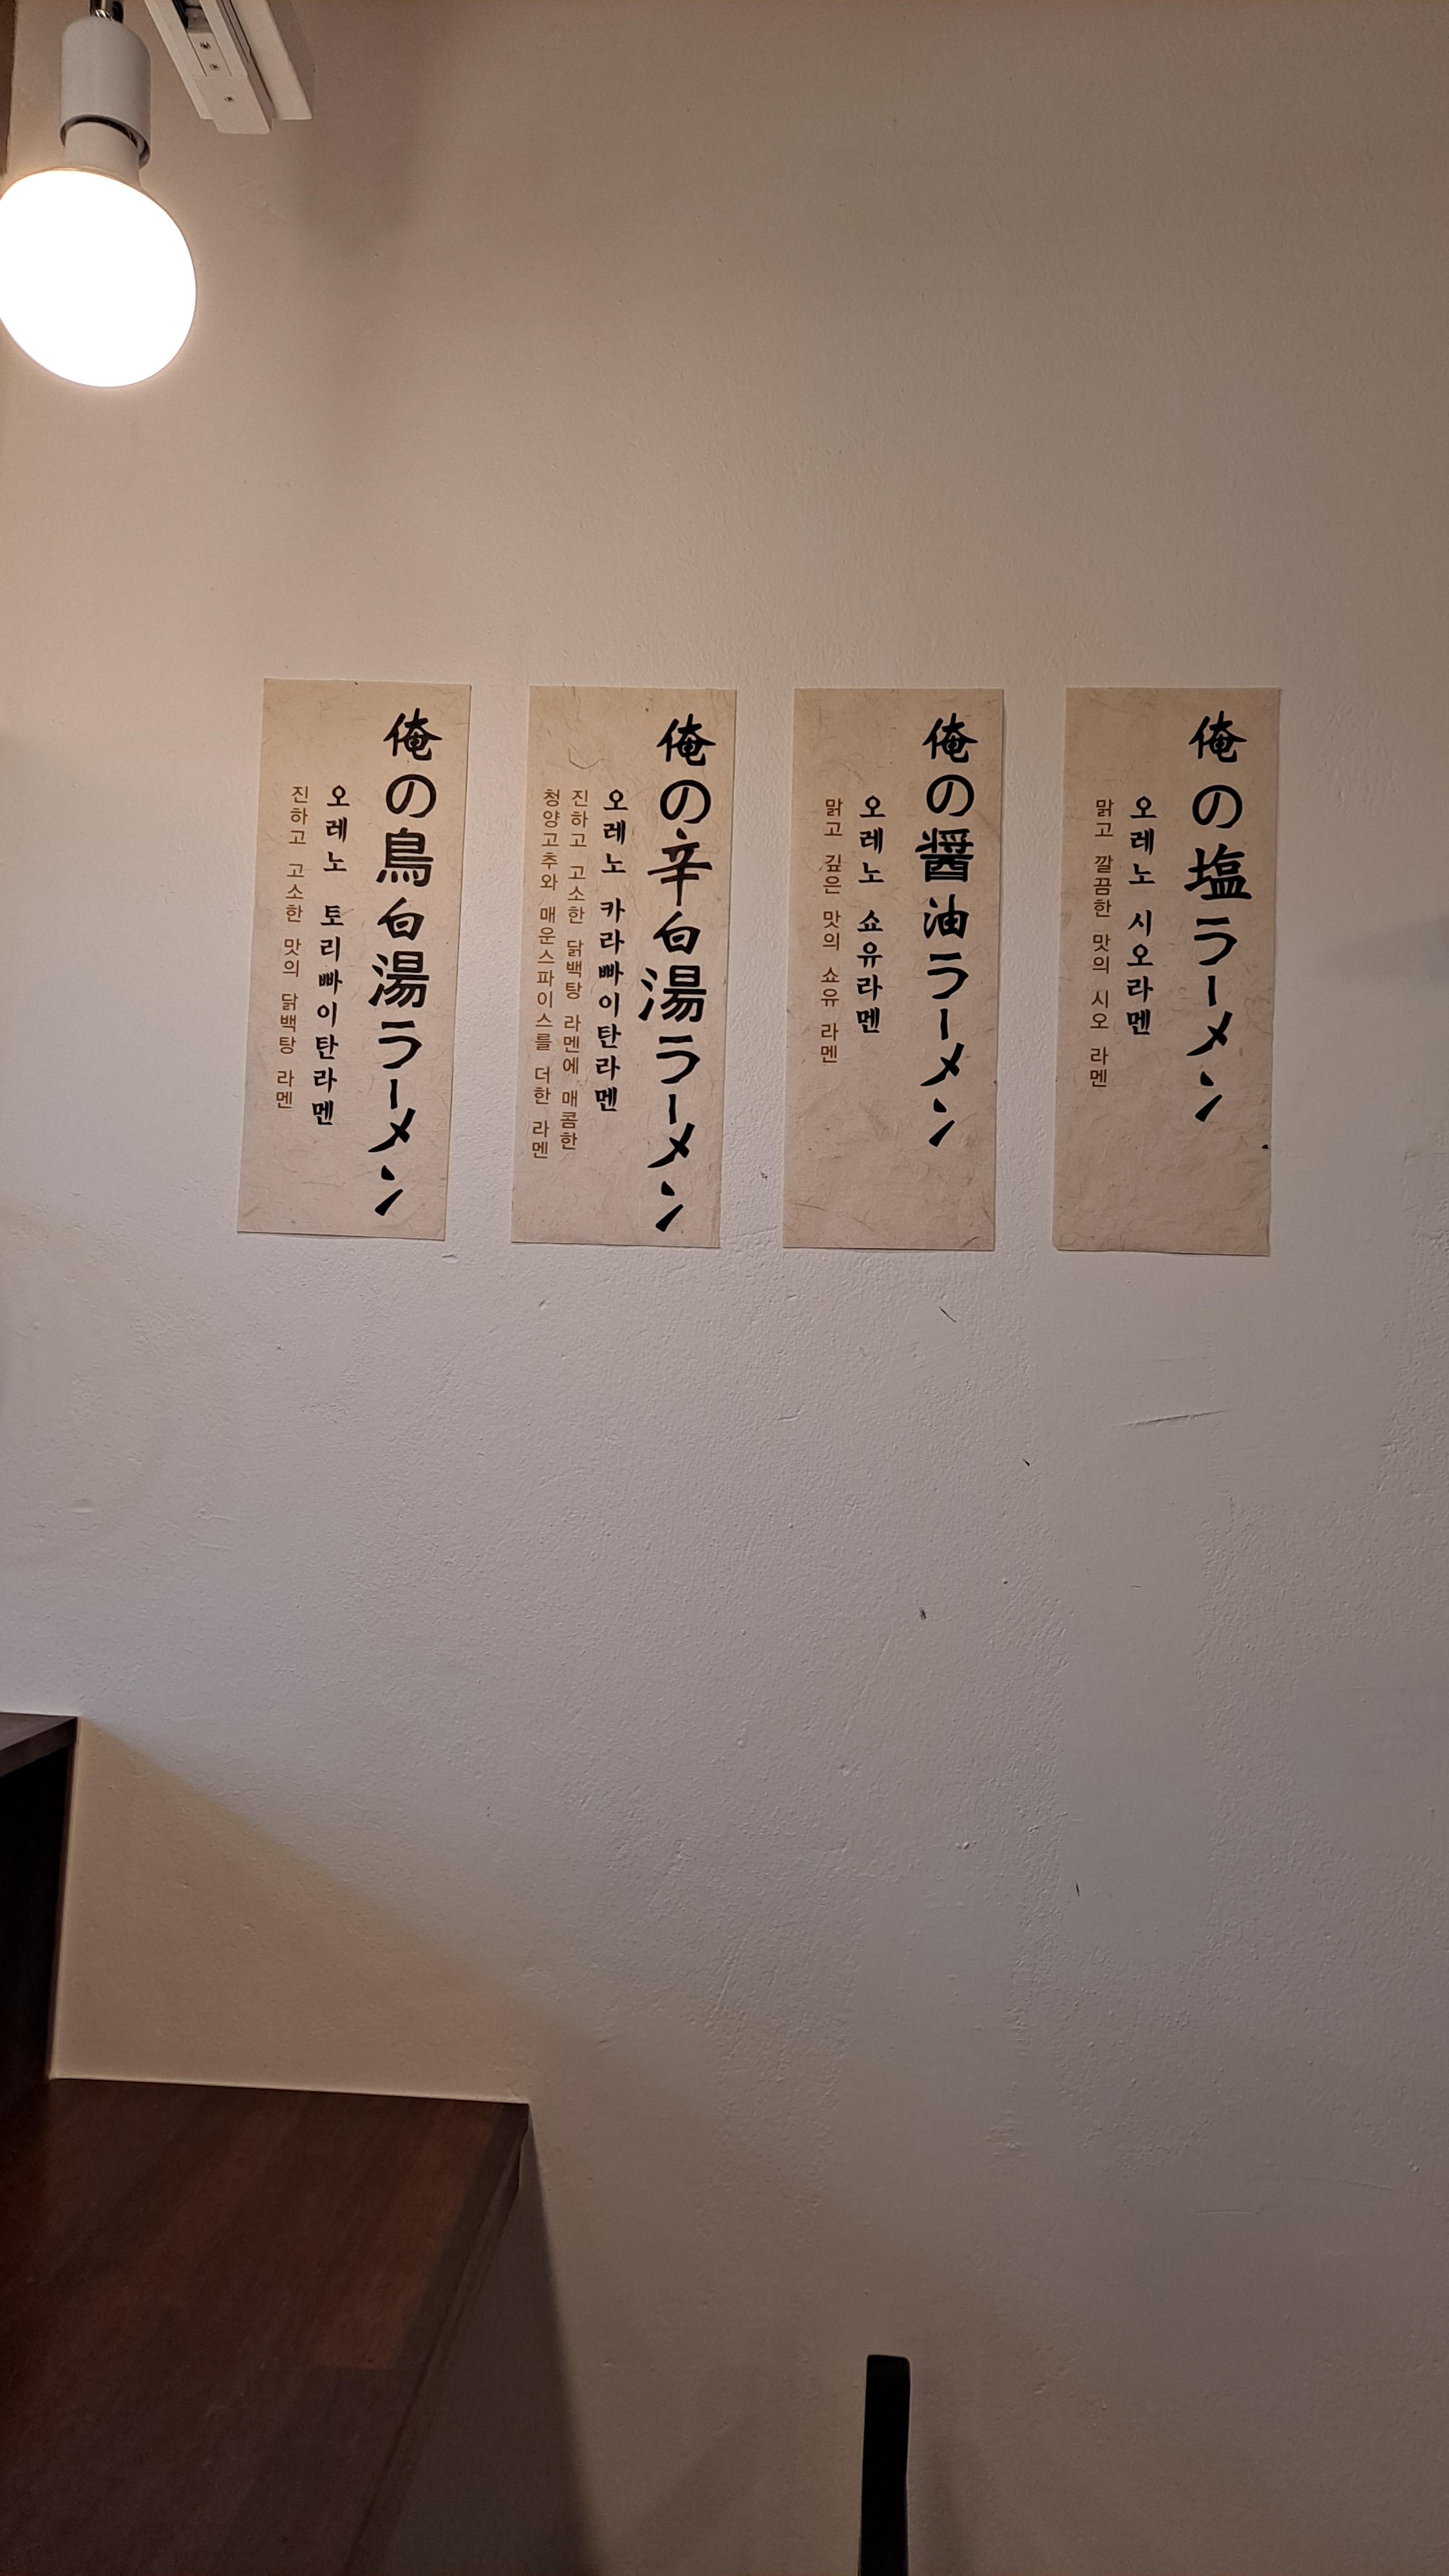 俺の塩ラーメン
오레노 시오라멘
맑고 깔끔한 맛의 시오 라멘
俺の醤油ラーメン
오레노 쇼유라멘
맑고 깊은 맛의 쇼유 라멘
俺の辛白湯ラーメン
오레노 카라빠이탄라멘
진하고 고소한 닭백탕 라멘에 매콤한
청양고추와 매운스파이스를 더한 라멘
俺の鳥白湯ラーメン
오레노 토리빠이탄라멘
진하고 고소한 맛의 닭백탕 라멘